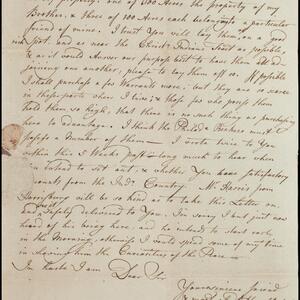 property; one of 500 Acres the property of my
Brother, & three of 100 Acres each belonging to a particular
friend of mine. I trust You will lay them on a good
spot, and as near the Chief Indian Seat as possible,
& as it would answer our purpose best to have them Ad-
joining one another, please to lay them off so. If possible
I shall purchase a few Warrants more; but they are so scarce
in these parts where I live; & those few who possess them
hold them so high, that there is no such thing as purchasing
here to advantage. I think the Philad. Brokers must
possess a Number of them — I wrote twice to You
within the 3 Weeks past — long much to hear when
You intend to set out, & whether You have satisfactory
accounts from the Ind. Country. Mr. Harris from
Harrisburg will be so kind as to take this Letter on,
& safely delivered to You. I'm sorry I but just now
heard of his being here, and he intends to start early
in the Morning, otherwise I would spend some of my time
in the Curiosities of the Place —
In haste I am Dear Sir
Your sincere friend